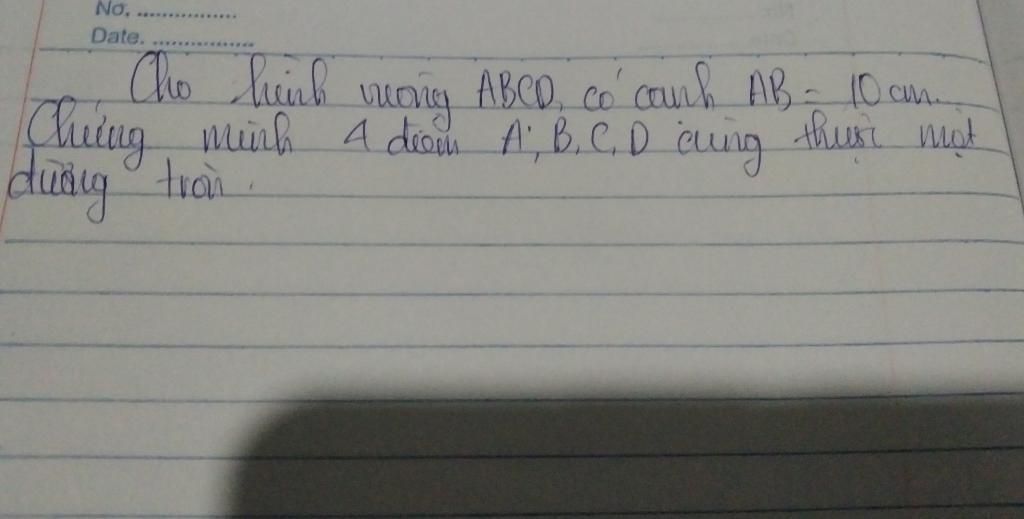 No. ................
Date. ................
Cho hình vuông ABCD, có cạnh AB = 10 cm.
Chứng minh 4 điểm A, B, C, D cùng thuộc một
đường tròn.